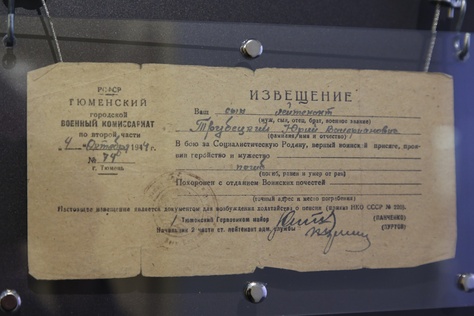 РСФСР
ТЮМЕНСКИЙ
городской
ВОЕННЫЙ КОМИССАРИАТ
по второй части
4 Октября 1944 г.
№
г. Тюмень
ИЗВЕЩЕНИЕ
Ваш сын лейтенант
(муж, сын, отец, брат, военное звание)
Трубецкой Юрий Валерианович
(фамилия, имя и отчество)
В бою за Социалистическую Родину, верный воинской присяге, проявив
геройство и мужество
погиб
(погиб, ранен и умер от ран)
Похоронен с отданием Воинских почестей
(точный адрес и место погребения)
Настоящее извещение является документом для возбуждения ходатайства о пенсии (приказ НКО СССР №
Тюменский Горвоенком майор
(ПАНЧЕНКО)
Начальник 2 части ст. лейтенант адм. службы
(ПУРТОВ)